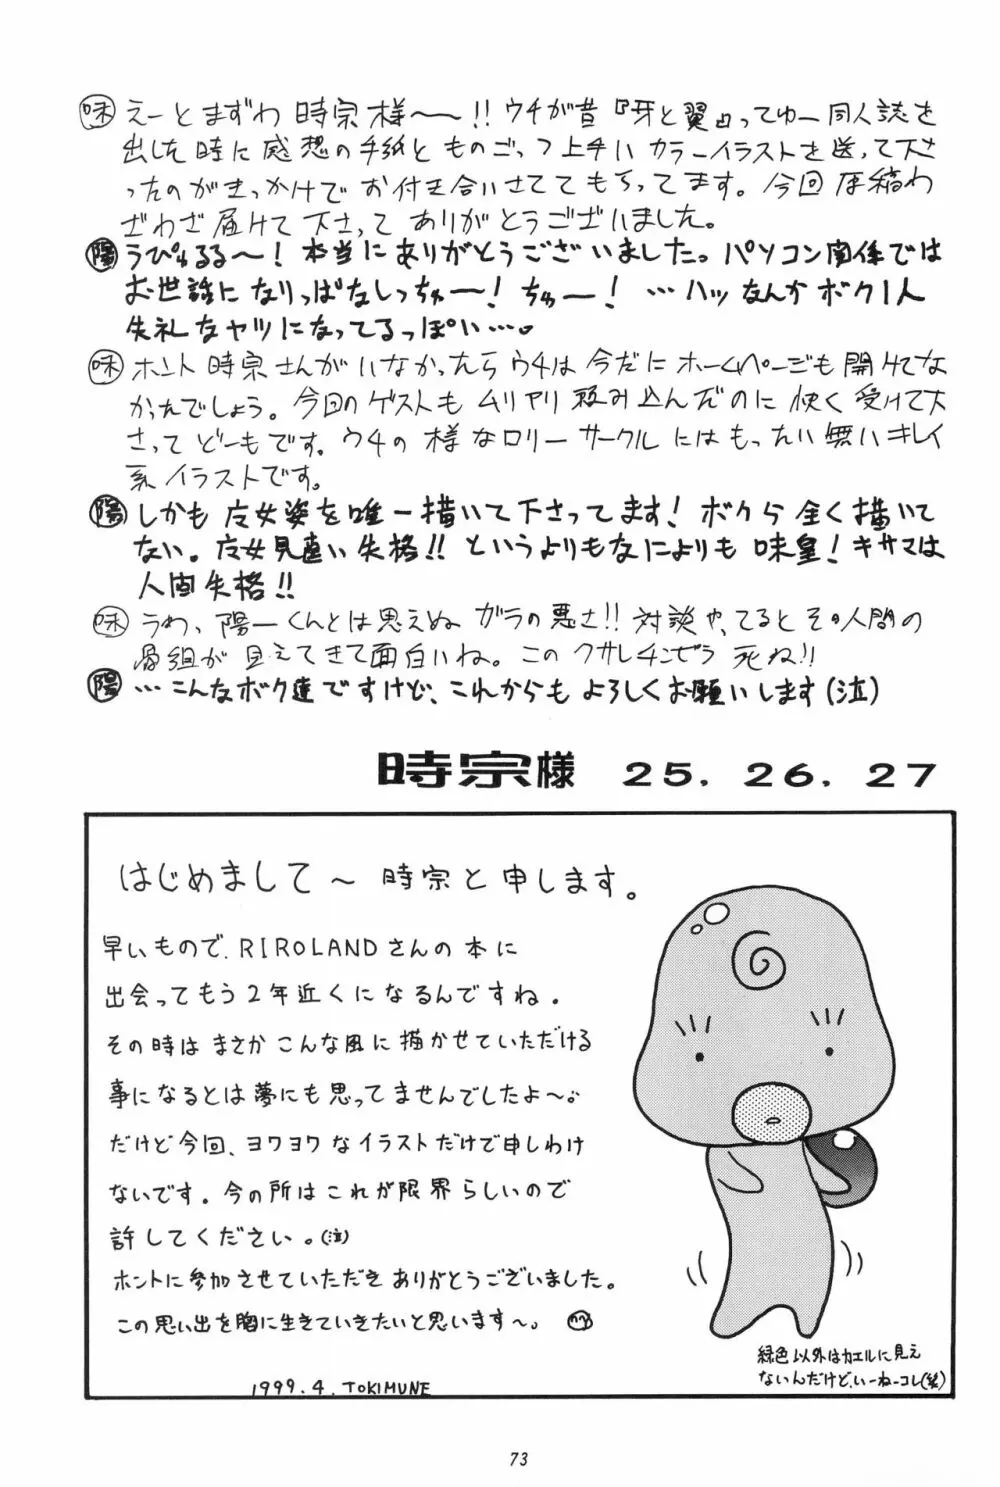 味 えーとまずわ 時宗様〜!! ウチが昔『牙と翼』ってゆー同人誌を
出した時に感想の手紙とものごっつ上手いカラーイラストを送って下さ
ったのがきっかけでお付き合いさせてもらってます。今回原稿わ
ざわざ届けて下さってありがとうございました。
陽 うぴゃるる〜! 本当にありがとうございました。パソコン関係では
お世話になりっぱなしっちゃー! ちゅー! …ハッなんかボク1人
失礼なヤツになってるっぽい…。
味 ホント時宗さんがいなかったらウチは今だにホームページも開けてな
かったでしょう。今回のゲストもムリヤリ頼み込んだのに快く受けて下
さってどーもです。ウチの様なロリーサークルにはもったい無いキレイ
系イラストです。
陽 しかも 女姿を唯一描いて下さってます! ボクら全く描いて
ない。 女見直い失格!! というよりもなによりも味皇! キサマは
人間失格!!
味 うわ、陽一くんとは思えぬガラの悪さ!! 対談やってるとその人間の
骨組が見えてきて面白いね。このクサレチンゼラ死ね!!
陽 …こんなボク達ですけど、これからもよろしくお願いします(泣)
時宗様 25. 26. 27
はじめまして〜 時宗と申します。
早いもので、RIROLANDさんの本に
出会ってもう2年近くになるんですね。
その時はまさかこんな風に描かせていただける
事になるとは夢にも思ってませんでしたよ〜。
だけど今回、ヨワヨワなイラストだけで申しわけ
ないです。今の所はこれが限界らしいので
許してください。(泣)
ホントに参加させていただきありがとうございました。
この思い出を胸に生きていきたいと思います〜。
1999.4. TOKIMUNE
緑色以外はカエルに見え
ないんだけど、いーねーコレ(笑)
73